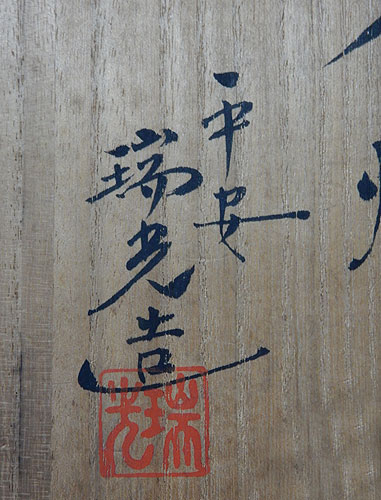 平安
瑞光造
瑞光